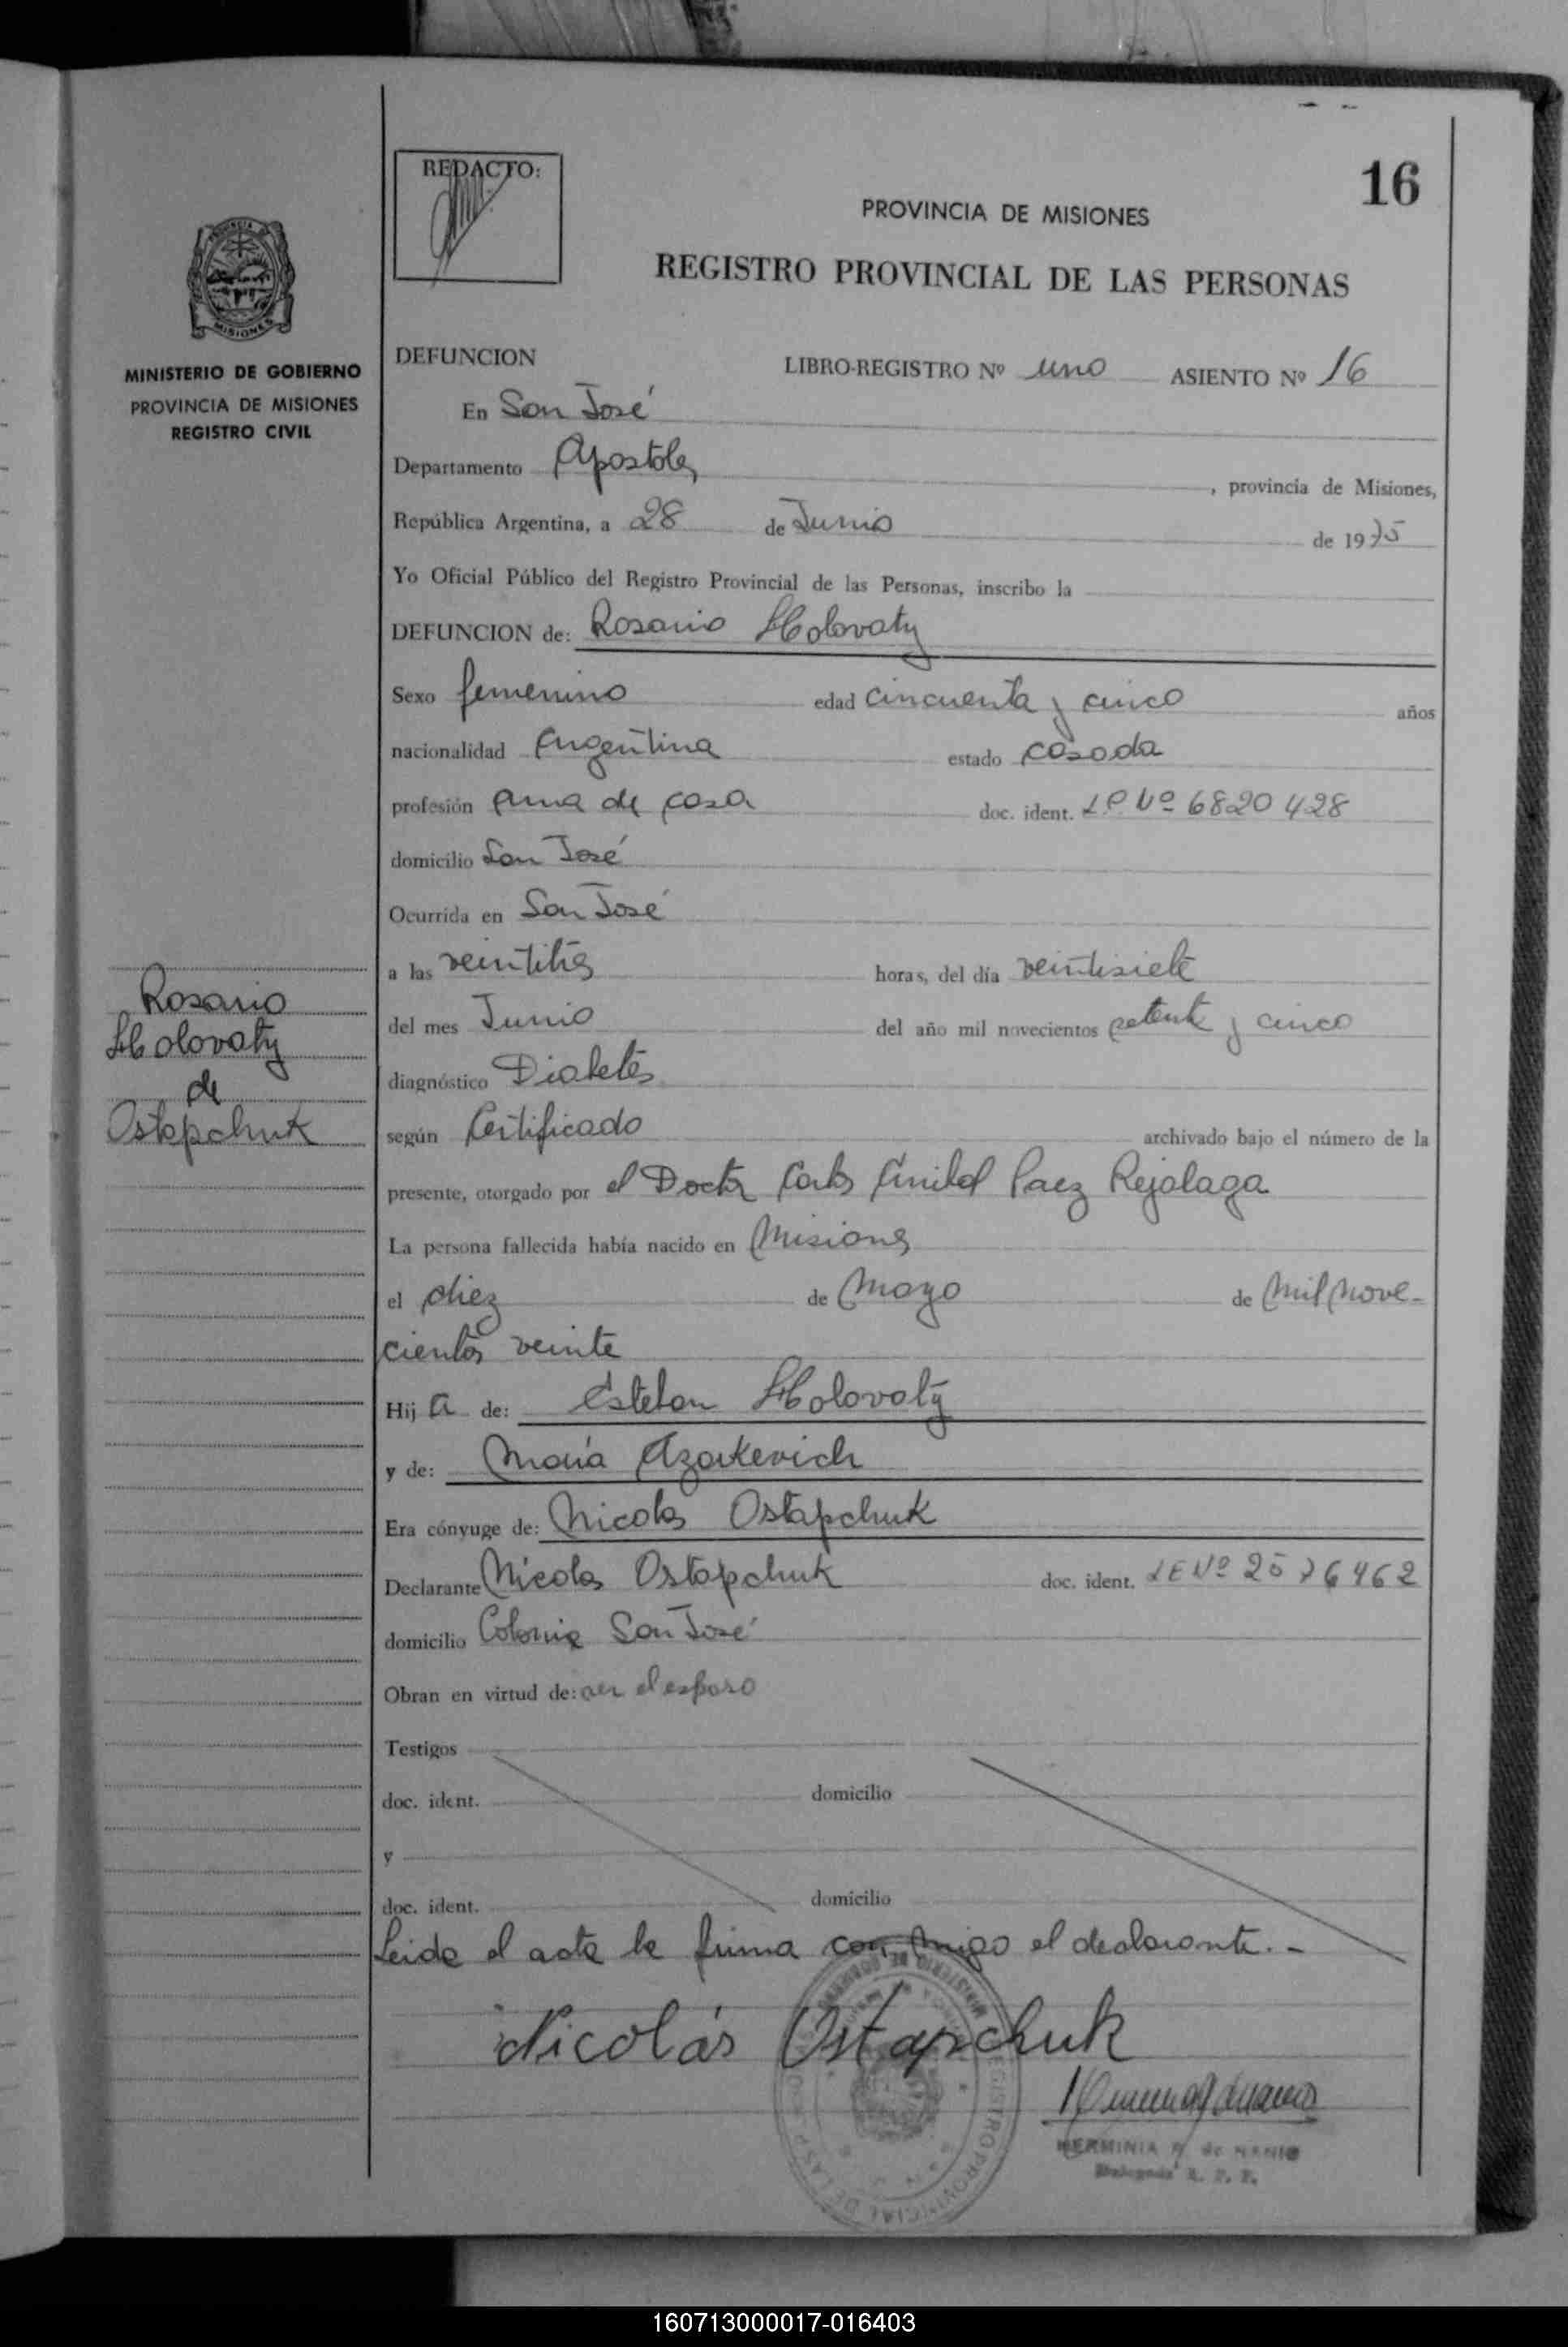 16
REDACTO:
PROVINCIA DE MISIONES
REGISTRO PROVINCIAL DE LAS PERSONAS
MISIONES
MINISTERIO DE GOBIERNO
PROVINCIA DE MISIONES
REGISTRO CIVIL
DEFUNCION LIBRO-REGISTRO Nº uno ASIENTO Nº 16
En San José
Departamento Apostoles, provincia de Misiones,
República Argentina, a 28 de Junio de 1975
Yo Oficial Público del Registro Provincial de las Personas, inscribo la
DEFUNCION de: Rosario Holovaty
Sexo femenino edad cincuenta y cinco años
nacionalidad Argentina estado casada
profesión ama de casa doc. ident. L.C. Nº 6820428
domicilio San José
Ocurrida en San José
a las veintitrés horas, del día veintisiete
del mes Junio del año mil novecientos setenta y cinco
diagnóstico Diabetes
según Certificado archivado bajo el número de la
presente, otorgado por el Doctor Carlos Paez Rejalaga
La persona fallecida había nacido en Misiones
el diez de Mayo de Mil nove-
cientos veinte
Hija de: Esteban Holovaty
y de: María Azarkevich
Era cónyuge de: Nicolas Ostapchuk
Declarante Nicolas Ostapchuk doc. ident. LE Nº 2576462
domicilio Colonia San José
Obran en virtud de: ser el esposo
Testigos
doc. ident. domicilio
y
doc. ident. domicilio
Leida el acta la firma conmigo el declarante.-
Nicolás Ostapchuk
HERMINIA de
R. P. P.
Rosario
Holovaty
de
Ostapchuk
160713000017-016403